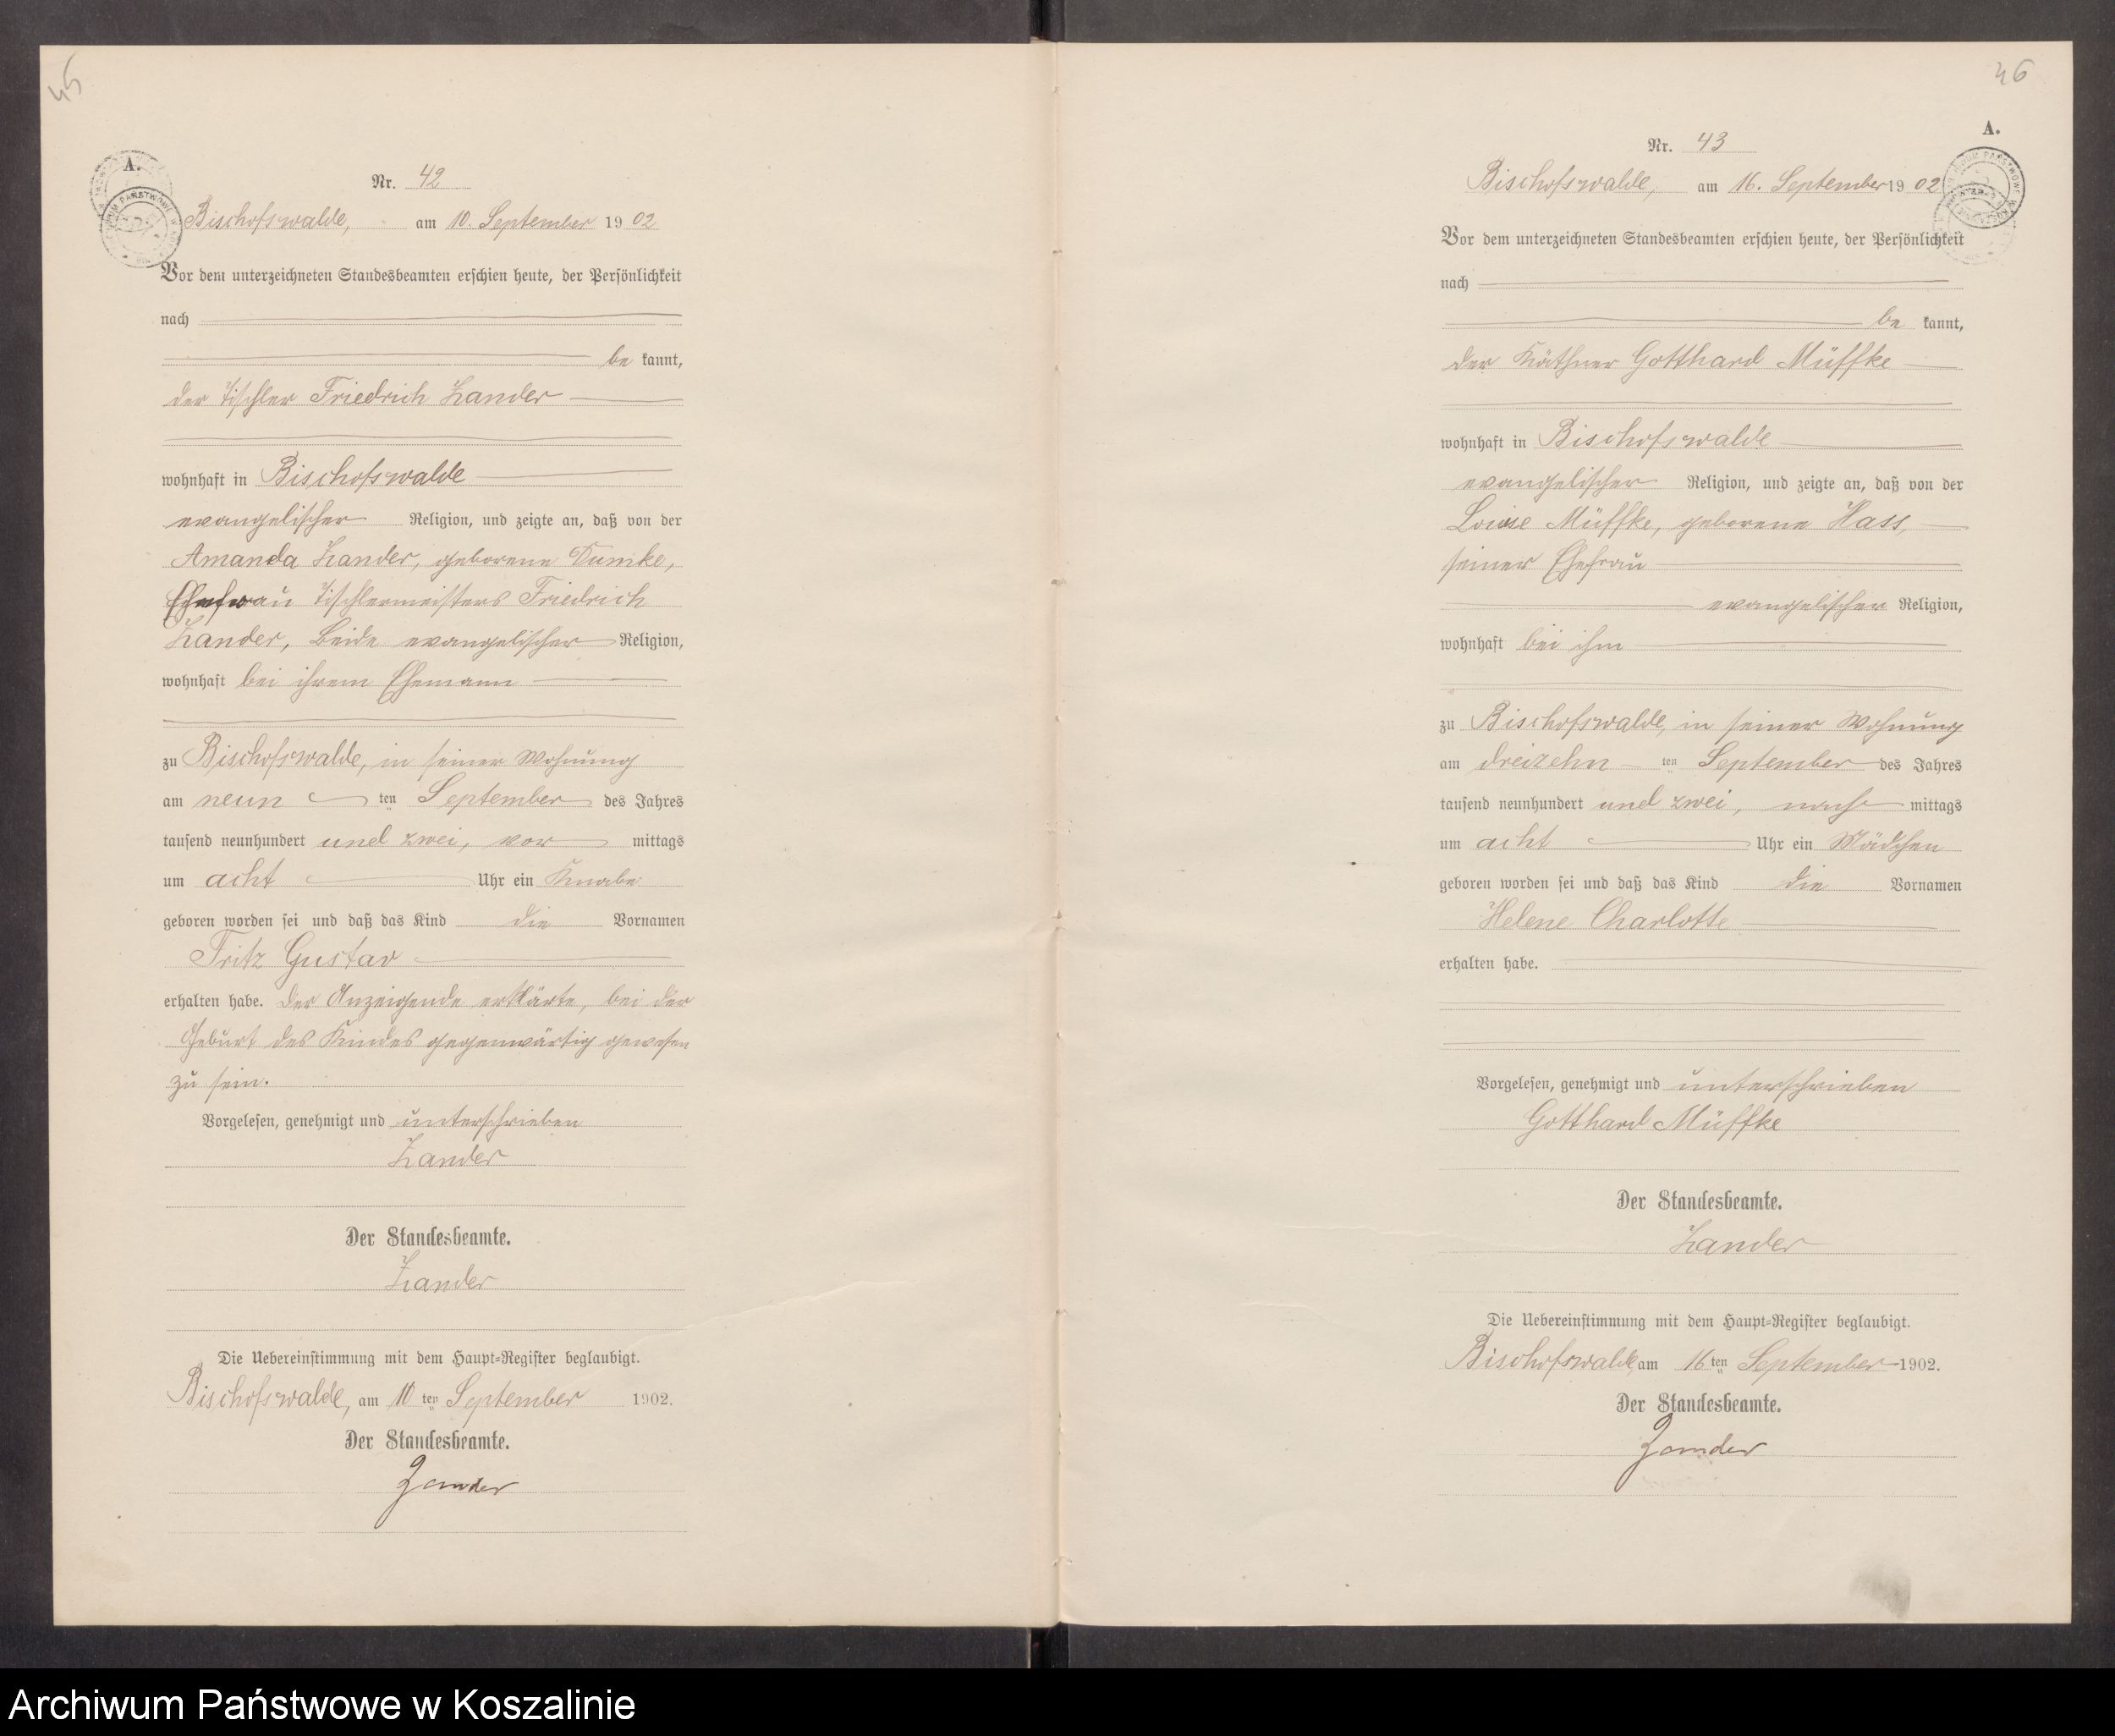 45
A.
Nr. 42
Bischofswalde, am 10. September 1902
Vor dem unterzeichneten Standesbeamten erschien heute, der Persönlichkeit
nach
be kannt,
der Tischler Friedrich Zander
wohnhaft in Bischofswalde
evangelischer Religion, und zeigte an, daß von der
Amanda Zander, geborene Dumke,
Ehefrau Tischlermeisters Friedrich
Zander, beide evangelischer Religion,
wohnhaft bei ihrem Ehemann
zu Bischofswalde, in seiner Wohnung
am neun ten September des Jahres
tausend neunhundert und zwei, vor mittags
um acht Uhr ein Knabe
geboren worden sei und daß das Kind die Vornamen
Fritz Gustav
erhalten habe. Der Anzeigende erklärte, bei der
Geburt des Kindes gegenwärtig gewesen
zu sein.
Vorgelesen, genehmigt und unterschrieben
Zander
Der Standesbeamte.
Zander
Die Uebereinstimmung mit dem Haupt=Register beglaubigt.
Bischofswalde, am 10 ten September 1902.
Der Standesbeamte.
Zander
46
A.
Nr. 43
Bischofswalde, am 16. September 1902
Vor dem unterzeichneten Standesbeamten erschien heute, der Persönlichkeit
nach
be kannt,
der Käthner Gotthard Müffke
wohnhaft in Bischofswalde
evangelischer Religion, und zeigte an, daß von der
Loise Müffke, geborene Hass,
seiner Ehefrau
evangelischer Religion,
wohnhaft bei ihm
zu Bischofswalde, in seiner Wohnung
am dreizehn ten September des Jahres
tausend neunhundert und zwei, nach mittags
um acht Uhr ein Mädchen
geboren worden sei und daß das Kind die Vornamen
Helene Charlotte
erhalten habe.
Vorgelesen, genehmigt und unterschrieben
Gotthard Müffke
Der Standesbeamte.
Zander
Die Uebereinstimmung mit dem Haupt=Register beglaubigt.
Bischofswalde, am 16 ten September 1902.
Der Standesbeamte.
Zander
Archiwum Państwowe w Koszalinie